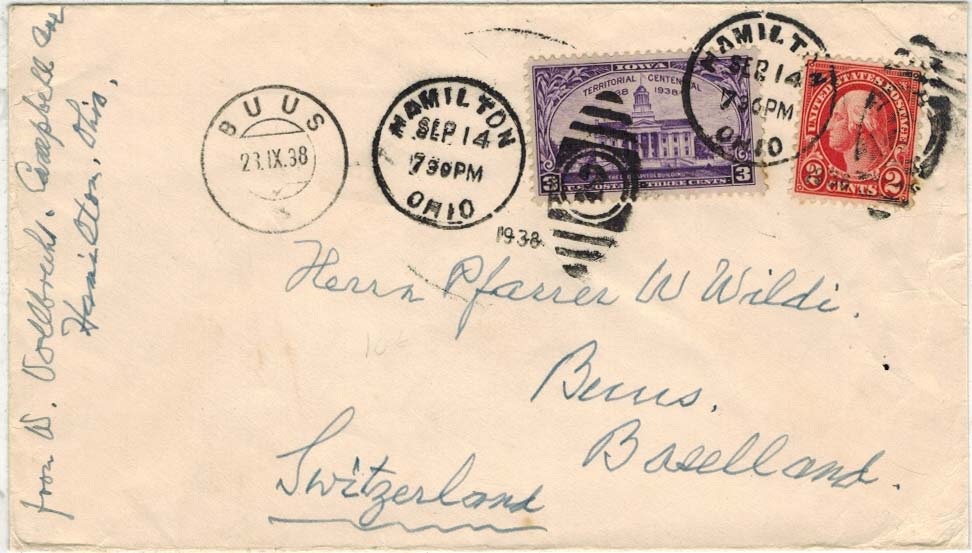 from W. Vollbrecht. Campbell Ave
Hamilton, Ohio.
BUUS
23.IX.38
HAMILTON
SEP 14
730PM
OHIO
1938
IOWA
TERRITORIAL CENTENNIAL
1838 1938
THE OLD CAPITOL BUILDING
3 U.S. POSTAGE THREE CENTS 3
HAMILTON
SEP 14
730PM
OHIO
UNITED STATES POSTAGE
2 CENTS 2
Herrn Pfarrer W Wildi.
Buus.
Baselland.
Switzerland